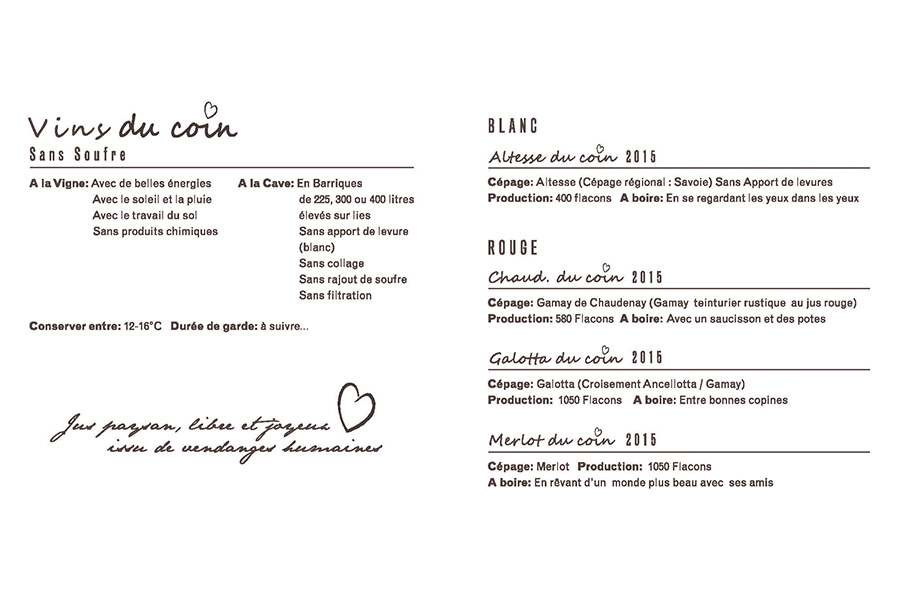 Vins du coin
Sans Soufre
A la Vigne: Avec de belles énergies
Avec le soleil et la pluie
Avec le travail du sol
Sans produits chimiques
A la Cave: En Barriques
de 225, 300 ou 400 litres
élevés sur lies
Sans apport de levure
(blanc)
Sans collage
Sans rajout de soufre
Sans filtration
Conserver entre: 12-16°C Durée de garde: à suivre...
Jus paysan, libre et joyeux
issu de vendanges humaines
BLANC
Altesse du coin 2015
Cépage: Altesse (Cépage régional : Savoie) Sans Apport de levures
Production: 400 flacons A boire: En se regardant les yeux dans les yeux
ROUGE
Chaud. du coin 2015
Cépage: Gamay de Chaudenay (Gamay teinturier rustique au jus rouge)
Production: 580 Flacons A boire: Avec un saucisson et des potes
Galotta du coin 2015
Cépage: Galotta (Croisement Ancellotta / Gamay)
Production: 1050 Flacons A boire: Entre bonnes copines
Merlot du coin 2015
Cépage: Merlot Production: 1050 Flacons
A boire: En rêvant d'un monde plus beau avec ses amis